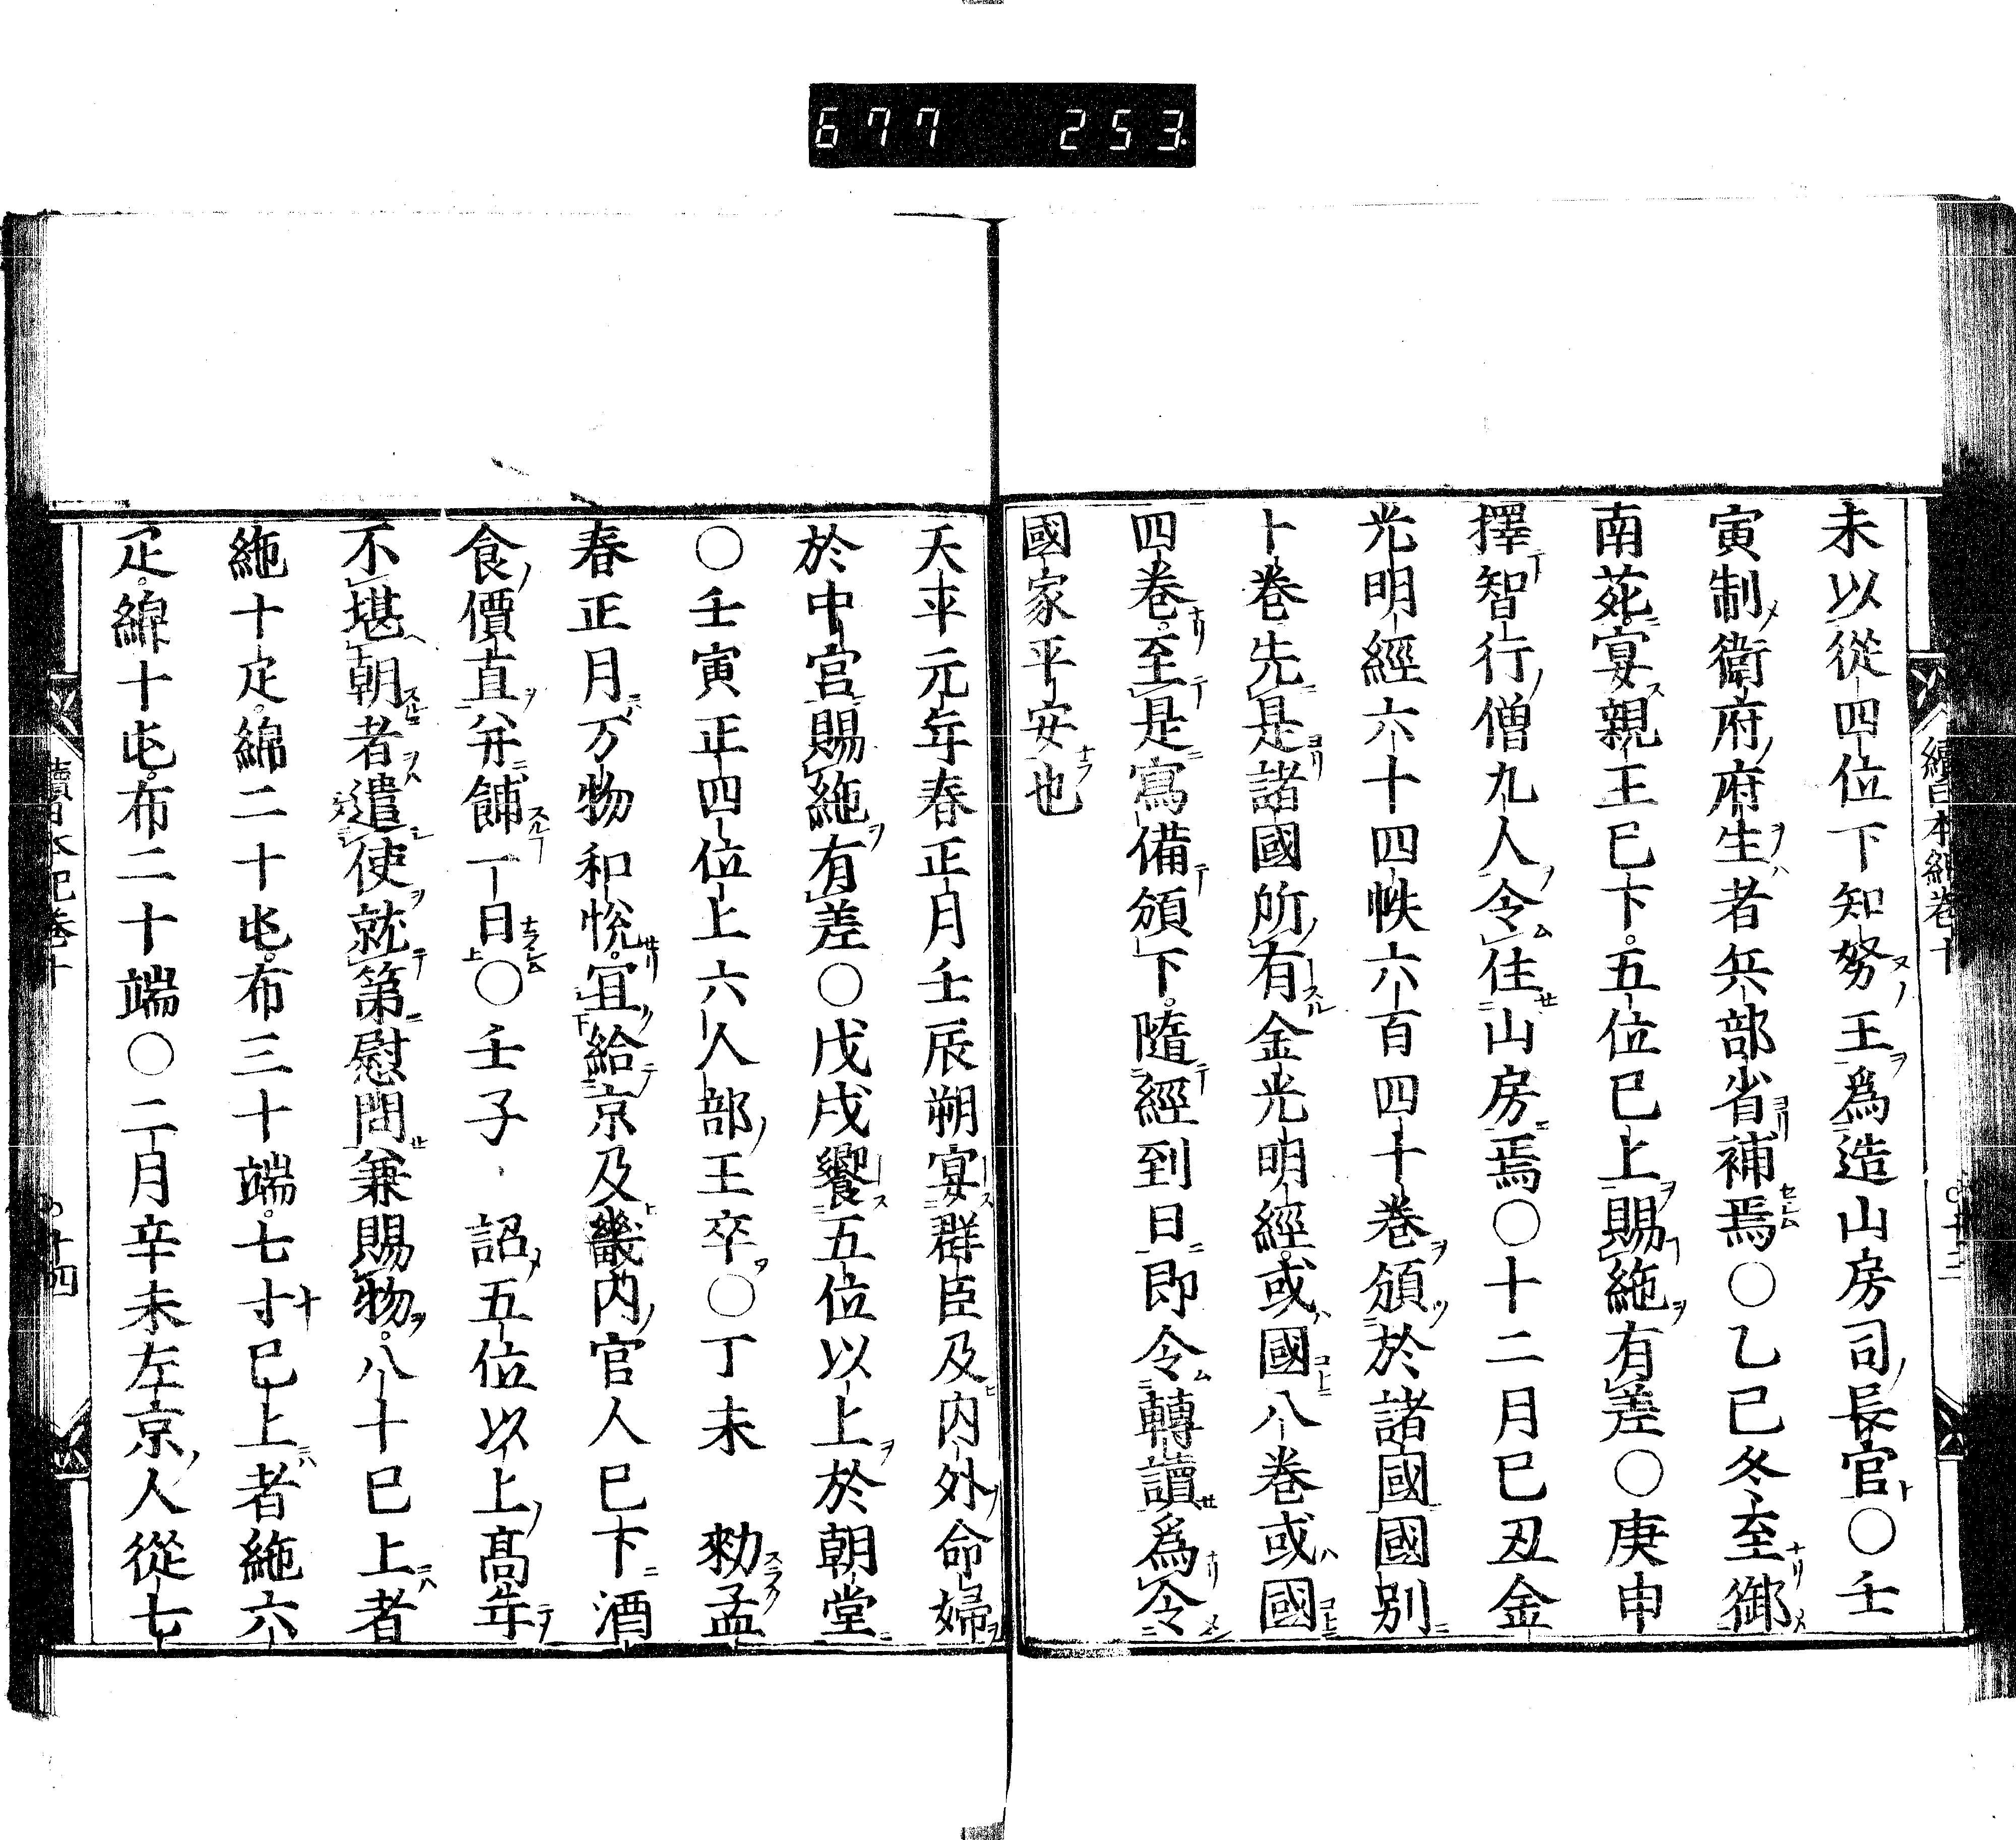 677 253
續日本紀卷十
未以從四位下知努王爲造山房司長官○壬
寅制衛府府生者兵部省補焉○乙巳冬至御
南苑宴親王已下五位已上賜絁有差○庚申
擇智行僧九人令住山房焉○十二月己丑金
光明經六十四帙六百四十卷頒於諸國國別
十卷先是諸國所有金光明經或國八卷或國
四卷至是寫備頒下隨經到日即令轉讀爲令
國家平安也
天平元年春正月壬辰朔宴群臣及内外命婦
於中宮賜絁有差○戊戌饗五位以上於朝堂
○壬寅正四位上六人部王卒○丁未 勑孟
春正月万物和悅宜給京及畿内官人已下酒
食價直并餔一日○壬子 詔五位以上高年
不堪朝者遣使就第慰問兼賜物八十已上者
絁十疋綿二十屯布三十端七十已上者絁六
疋綿十屯布二十端○二月辛未左京人從七
續日本紀卷十 十四